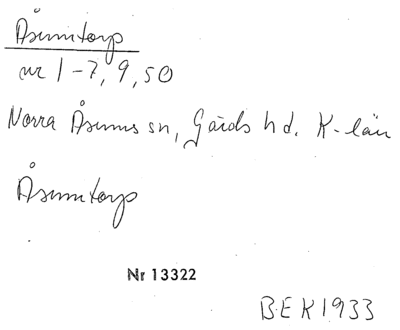 Åsumtorp
nr 1-7, 9, 50
Norra Åsums sn, Gärds hd. K-län
Åsumtorp
Nr 13322
BEK1933